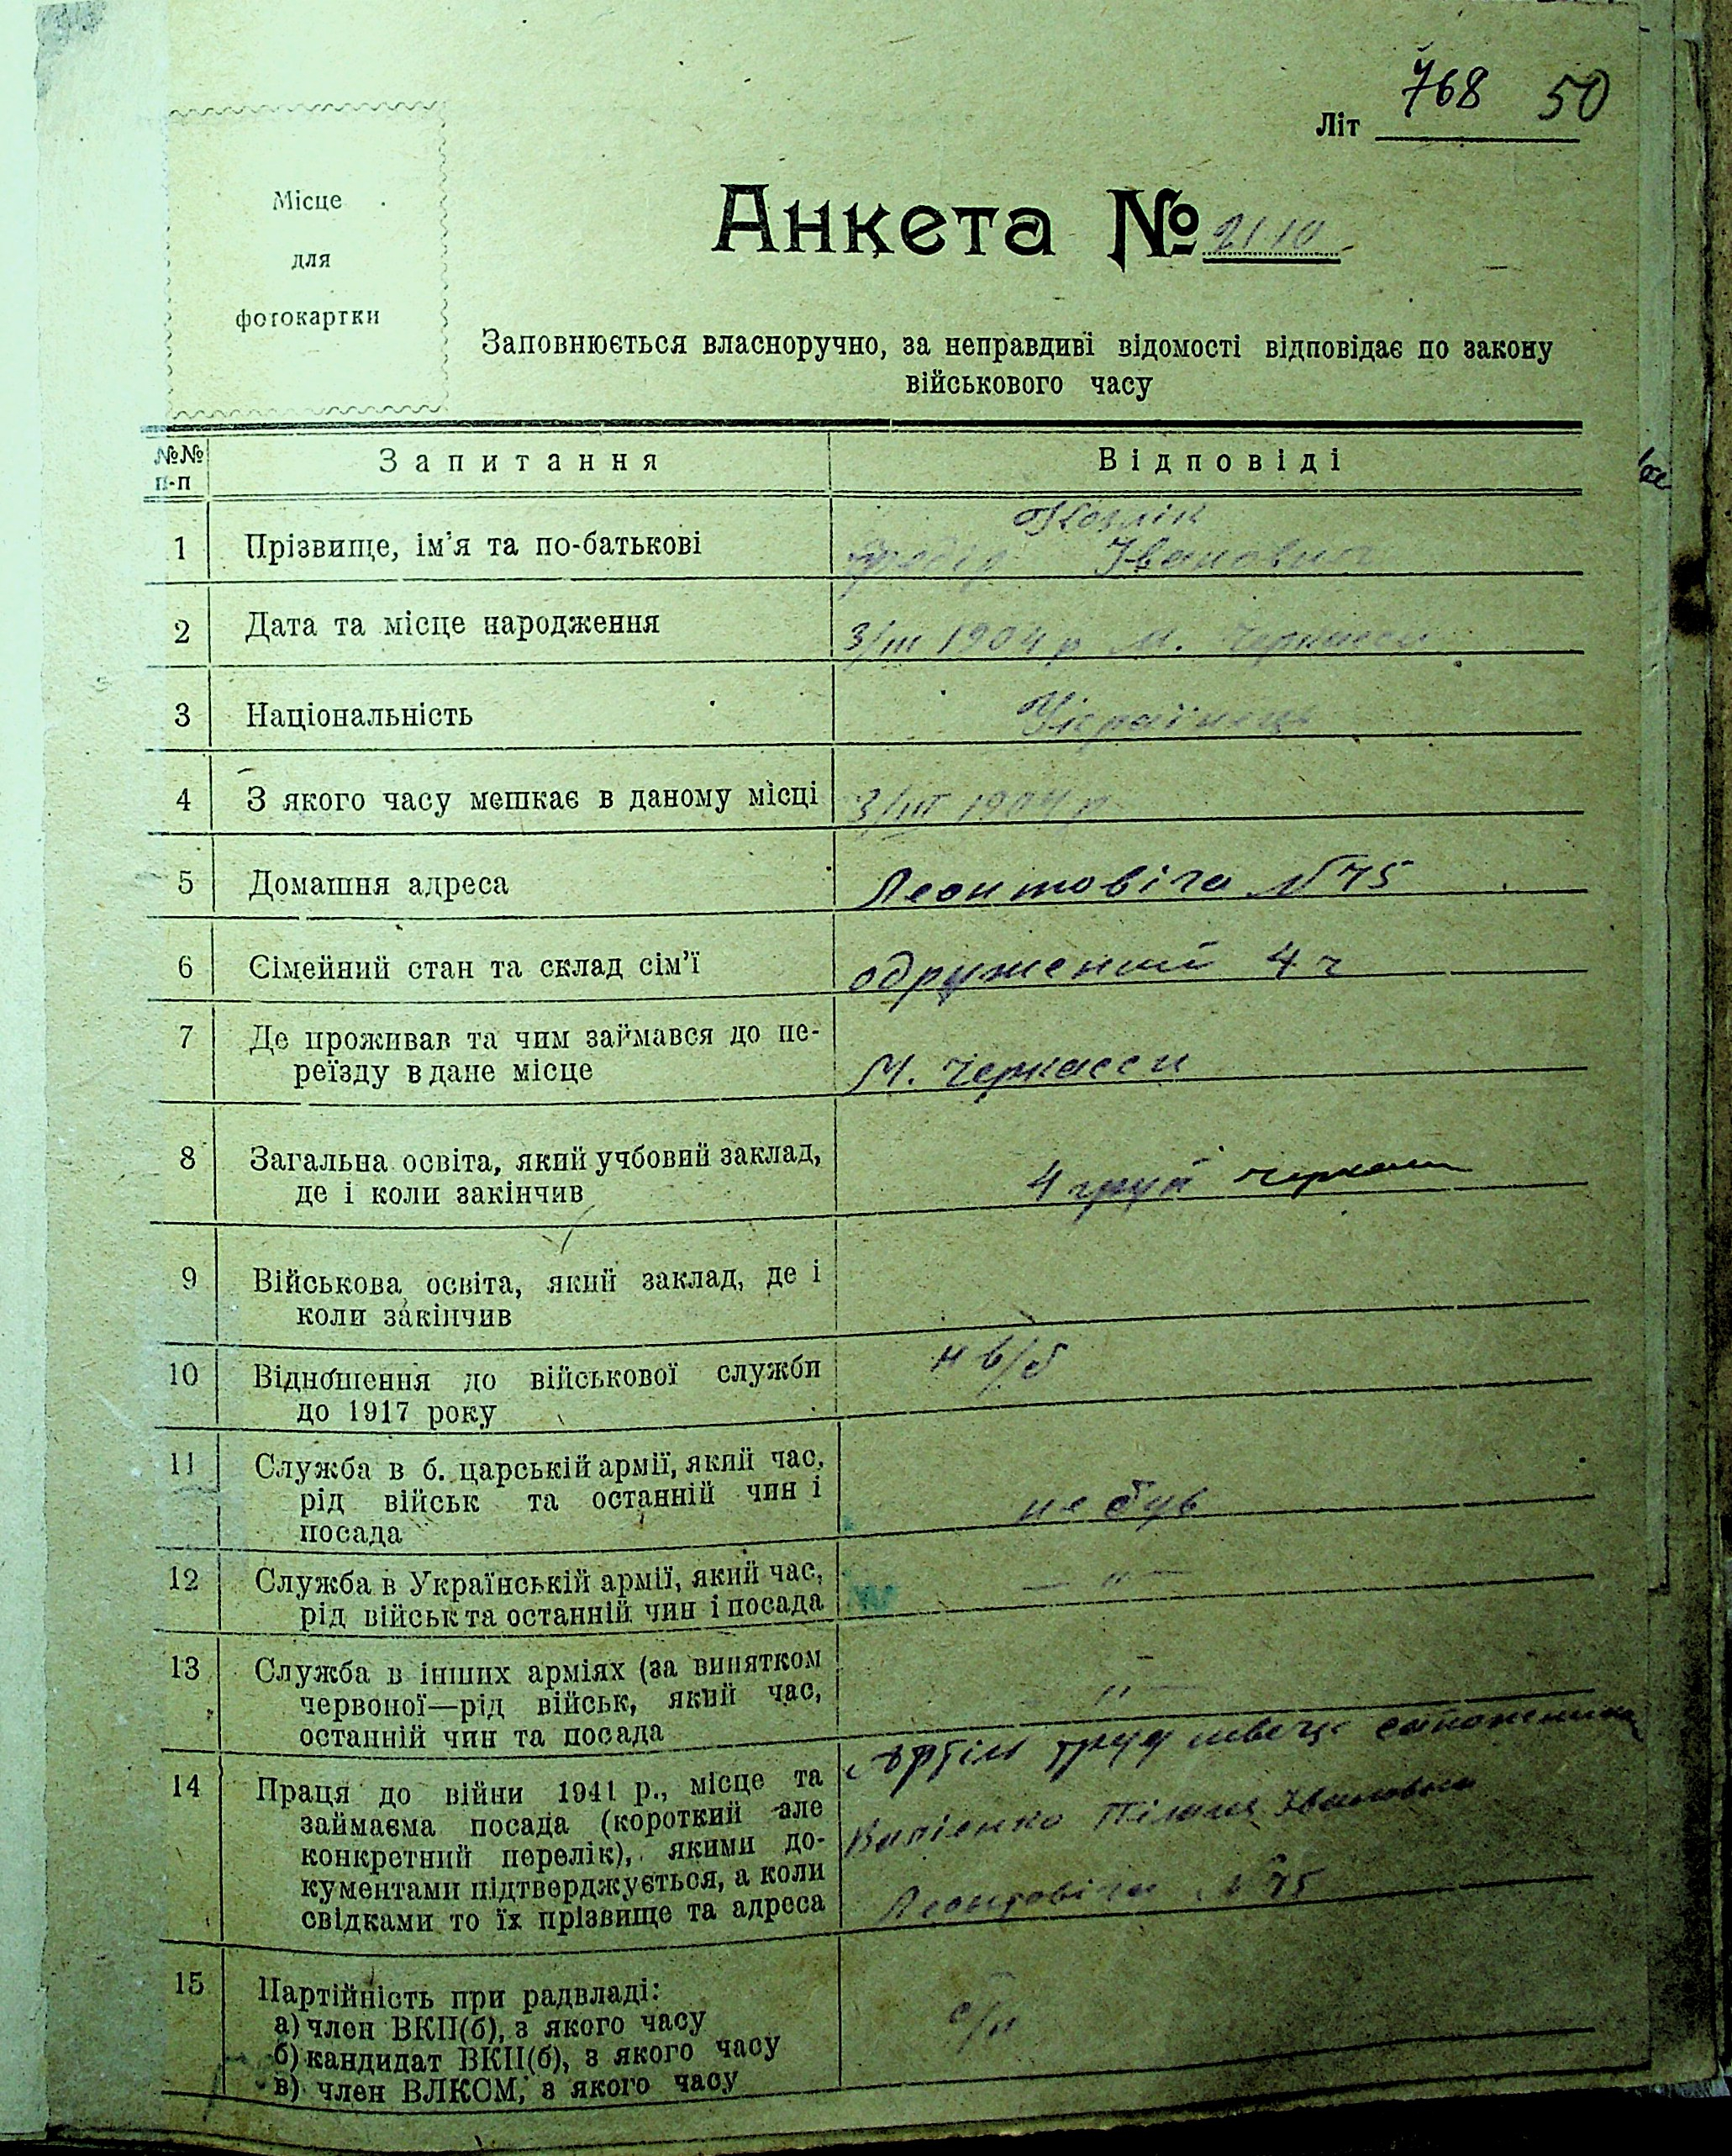 768 50
Літ
Місце
для
фотокартки
Анкета № 2110
Заповнюється власноручно, за неправдиві відомості відповідає по закону
військового часу
№№ п-п Запитання Відповіді
1 Прізвище, ім'я та по-батькові Козлік
Федір Іванович
2 Дата та місце народження 3/III 1904 р М. Черкаси
3 Національність Українець
4 З якого часу мешкає в даному місці 3/III 1904 р
5 Домашня адреса Леонтовіча №75
6 Сімейний стан та склад сім'ї одружений 4 ч
7 Де проживав та чим займався до пе-
реїзду в дане місце М. Черкасси
8 Загальна освіта, який учбовий заклад,
де і коли закінчив 4 груп
9 Військова освіта, який заклад, де і
коли закінчив
10 Відношення до військової служби н в/б
до 1917 року
11 Служба в б. царській армії, який час,
рід військ та останній чин і не був
посада
12 Служба в Українській армії, який час, — " —
рід військ та останній чин і посада
13 Служба в інших арміях (за винятком
червоної—рід військ, який час, — " —
останній чин та посада
14 Праця до війни 1941 р., місце та Артіль труд швець
займаєма посада (короткий але
конкретний перелік), якими до- Івановна
кументами підтверджується, а коли
свідками то їх прізвище та адреса Леонтовіча №75
15 Партійність при радвладі:
а) член ВКП(б), з якого часу
б) кандидат ВКП(б), з якого часу
в) член ВЛКСМ, з якого часу